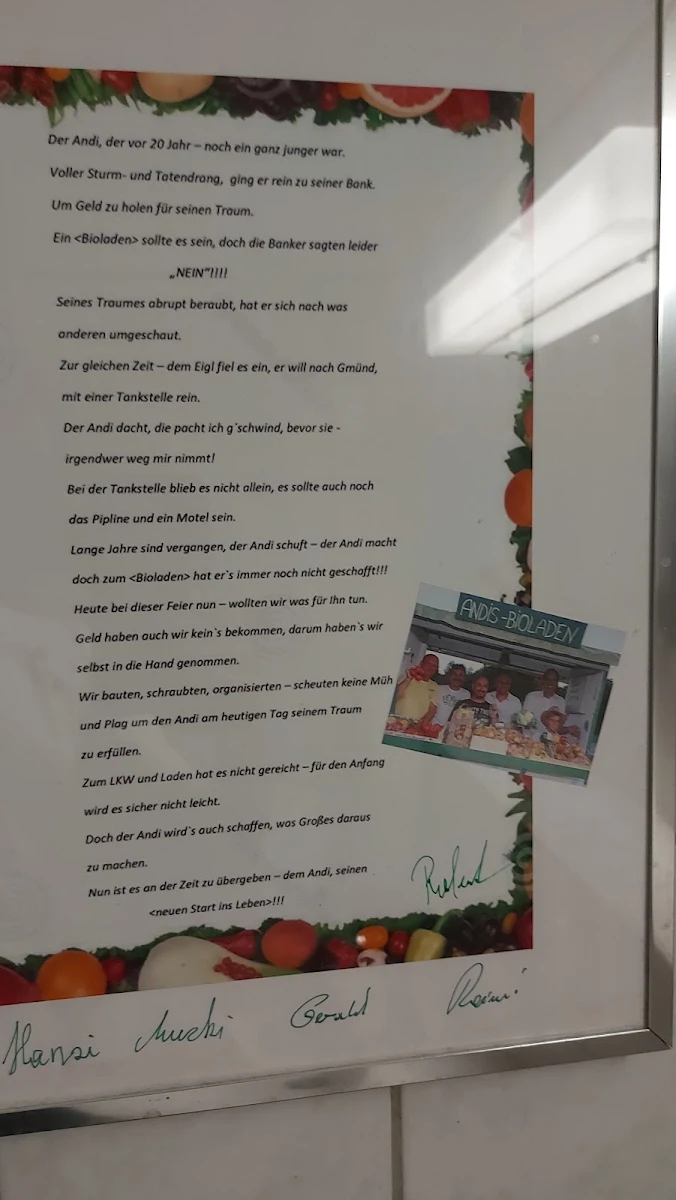 Der Andi, der vor 20 Jahr – noch ein ganz junger war.
Voller Sturm- und Tatendrang, ging er rein zu seiner Bank.
Um Geld zu holen für seinen Traum.
Ein <Bioladen> sollte es sein, doch die Banker sagten leider
„NEIN"!!!!
Seines Traumes abrupt beraubt, hat er sich nach was
anderen umgeschaut.
Zur gleichen Zeit – dem Eigl fiel es ein, er will nach Gmünd,
mit einer Tankstelle rein.
Der Andi dacht, die pacht ich g´schwind, bevor sie -
irgendwer weg mir nimmt!
Bei der Tankstelle blieb es nicht allein, es sollte auch noch
das Pipline und ein Motel sein.
Lange Jahre sind vergangen, der Andi schuft – der Andi macht
doch zum <Bioladen> hat er`s immer noch nicht geschafft!!!
Heute bei dieser Feier nun – wollten wir was für Ihn tun.
Geld haben auch wir kein`s bekommen, darum haben`s wir
selbst in die Hand genommen.
Wir bauten, schraubten, organisierten – scheuten keine Müh
und Plag um den Andi am heutigen Tag seinem Traum
zu erfüllen.
Zum LKW und Laden hat es nicht gereicht – für den Anfang
wird es sicher nicht leicht.
Doch der Andi wird`s auch schaffen, was Großes daraus
zu machen.
Nun ist es an der Zeit zu übergeben – dem Andi, seinen
<neuen Start ins Leben>!!!
ANDIS-BIOLADEN
Robert
Hansi Mucki Gerald Reini